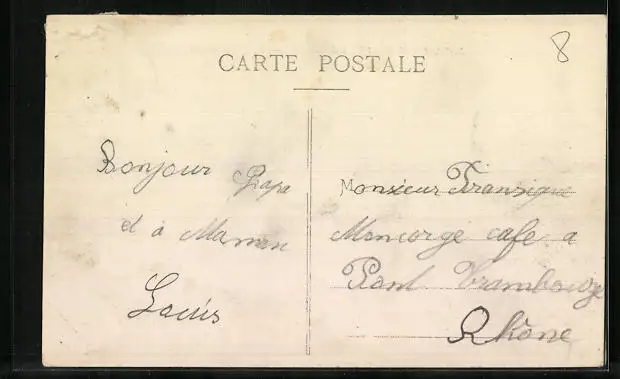 8
CARTE POSTALE
Bonjour Papa
et à Maman
Louis
Monsieur Fransique
Moncorgé cafe a
Pont Trambouze
Rhône